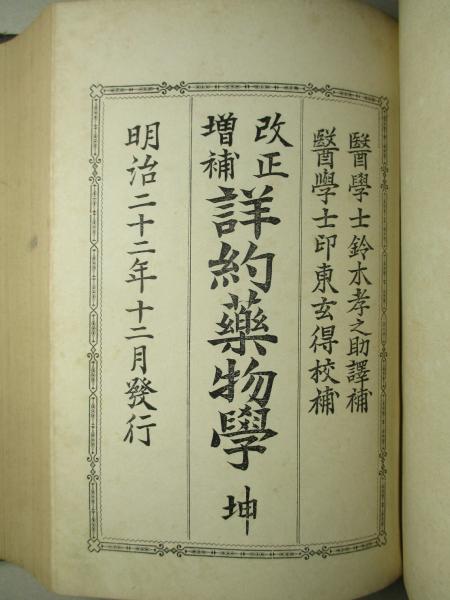 醫學士鈴木孝之助譯補
醫學士印東玄得校補
改正
増補
詳約藥物學 坤
明治二十二年十二月發行